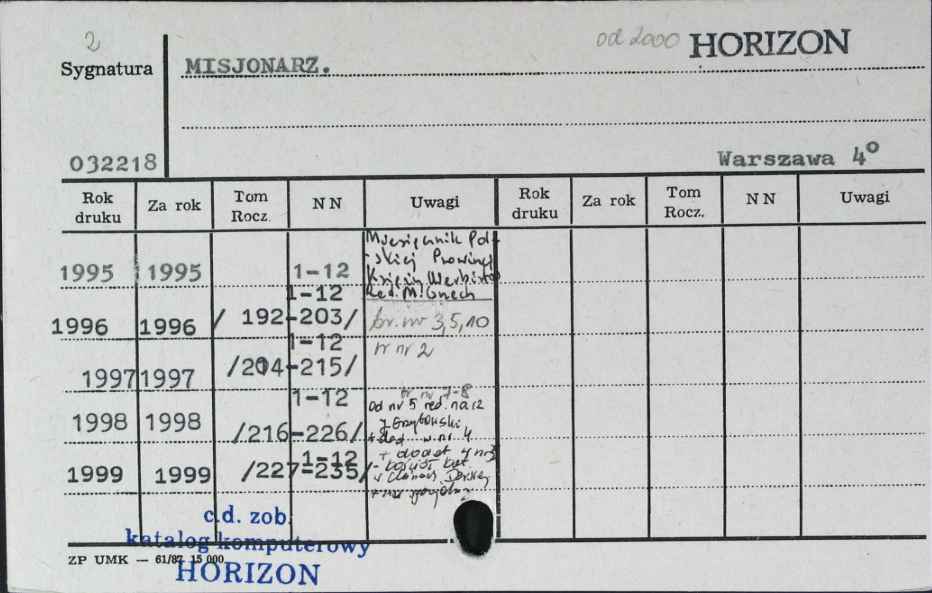 2
od 2000 HORIZON
Sygnatura
MISJONARZ.
032218
Warszawa 4°
Rok druku Za rok Tom Rocz. N N Uwagi Rok druku Za rok Tom Rocz. N N Uwagi
Miesięcznik Pol-
skiej Prowincji
Księży Werbistów
1995 1995 1-12
Red. M. Grech
1-12
1996 1996 / 192-203/ br. nr 3,5,10
1-12
1997 1997 /204-215/ br nr 2
1-12 br nr 7-8
od nr 5 red. nacz
1998 1998 /216-226/
1-12 + dodat
1999 1999 /227-235/
c.d. zob.
katalog komputerowy
HORIZON
ZP UMK — 61/87 15 000